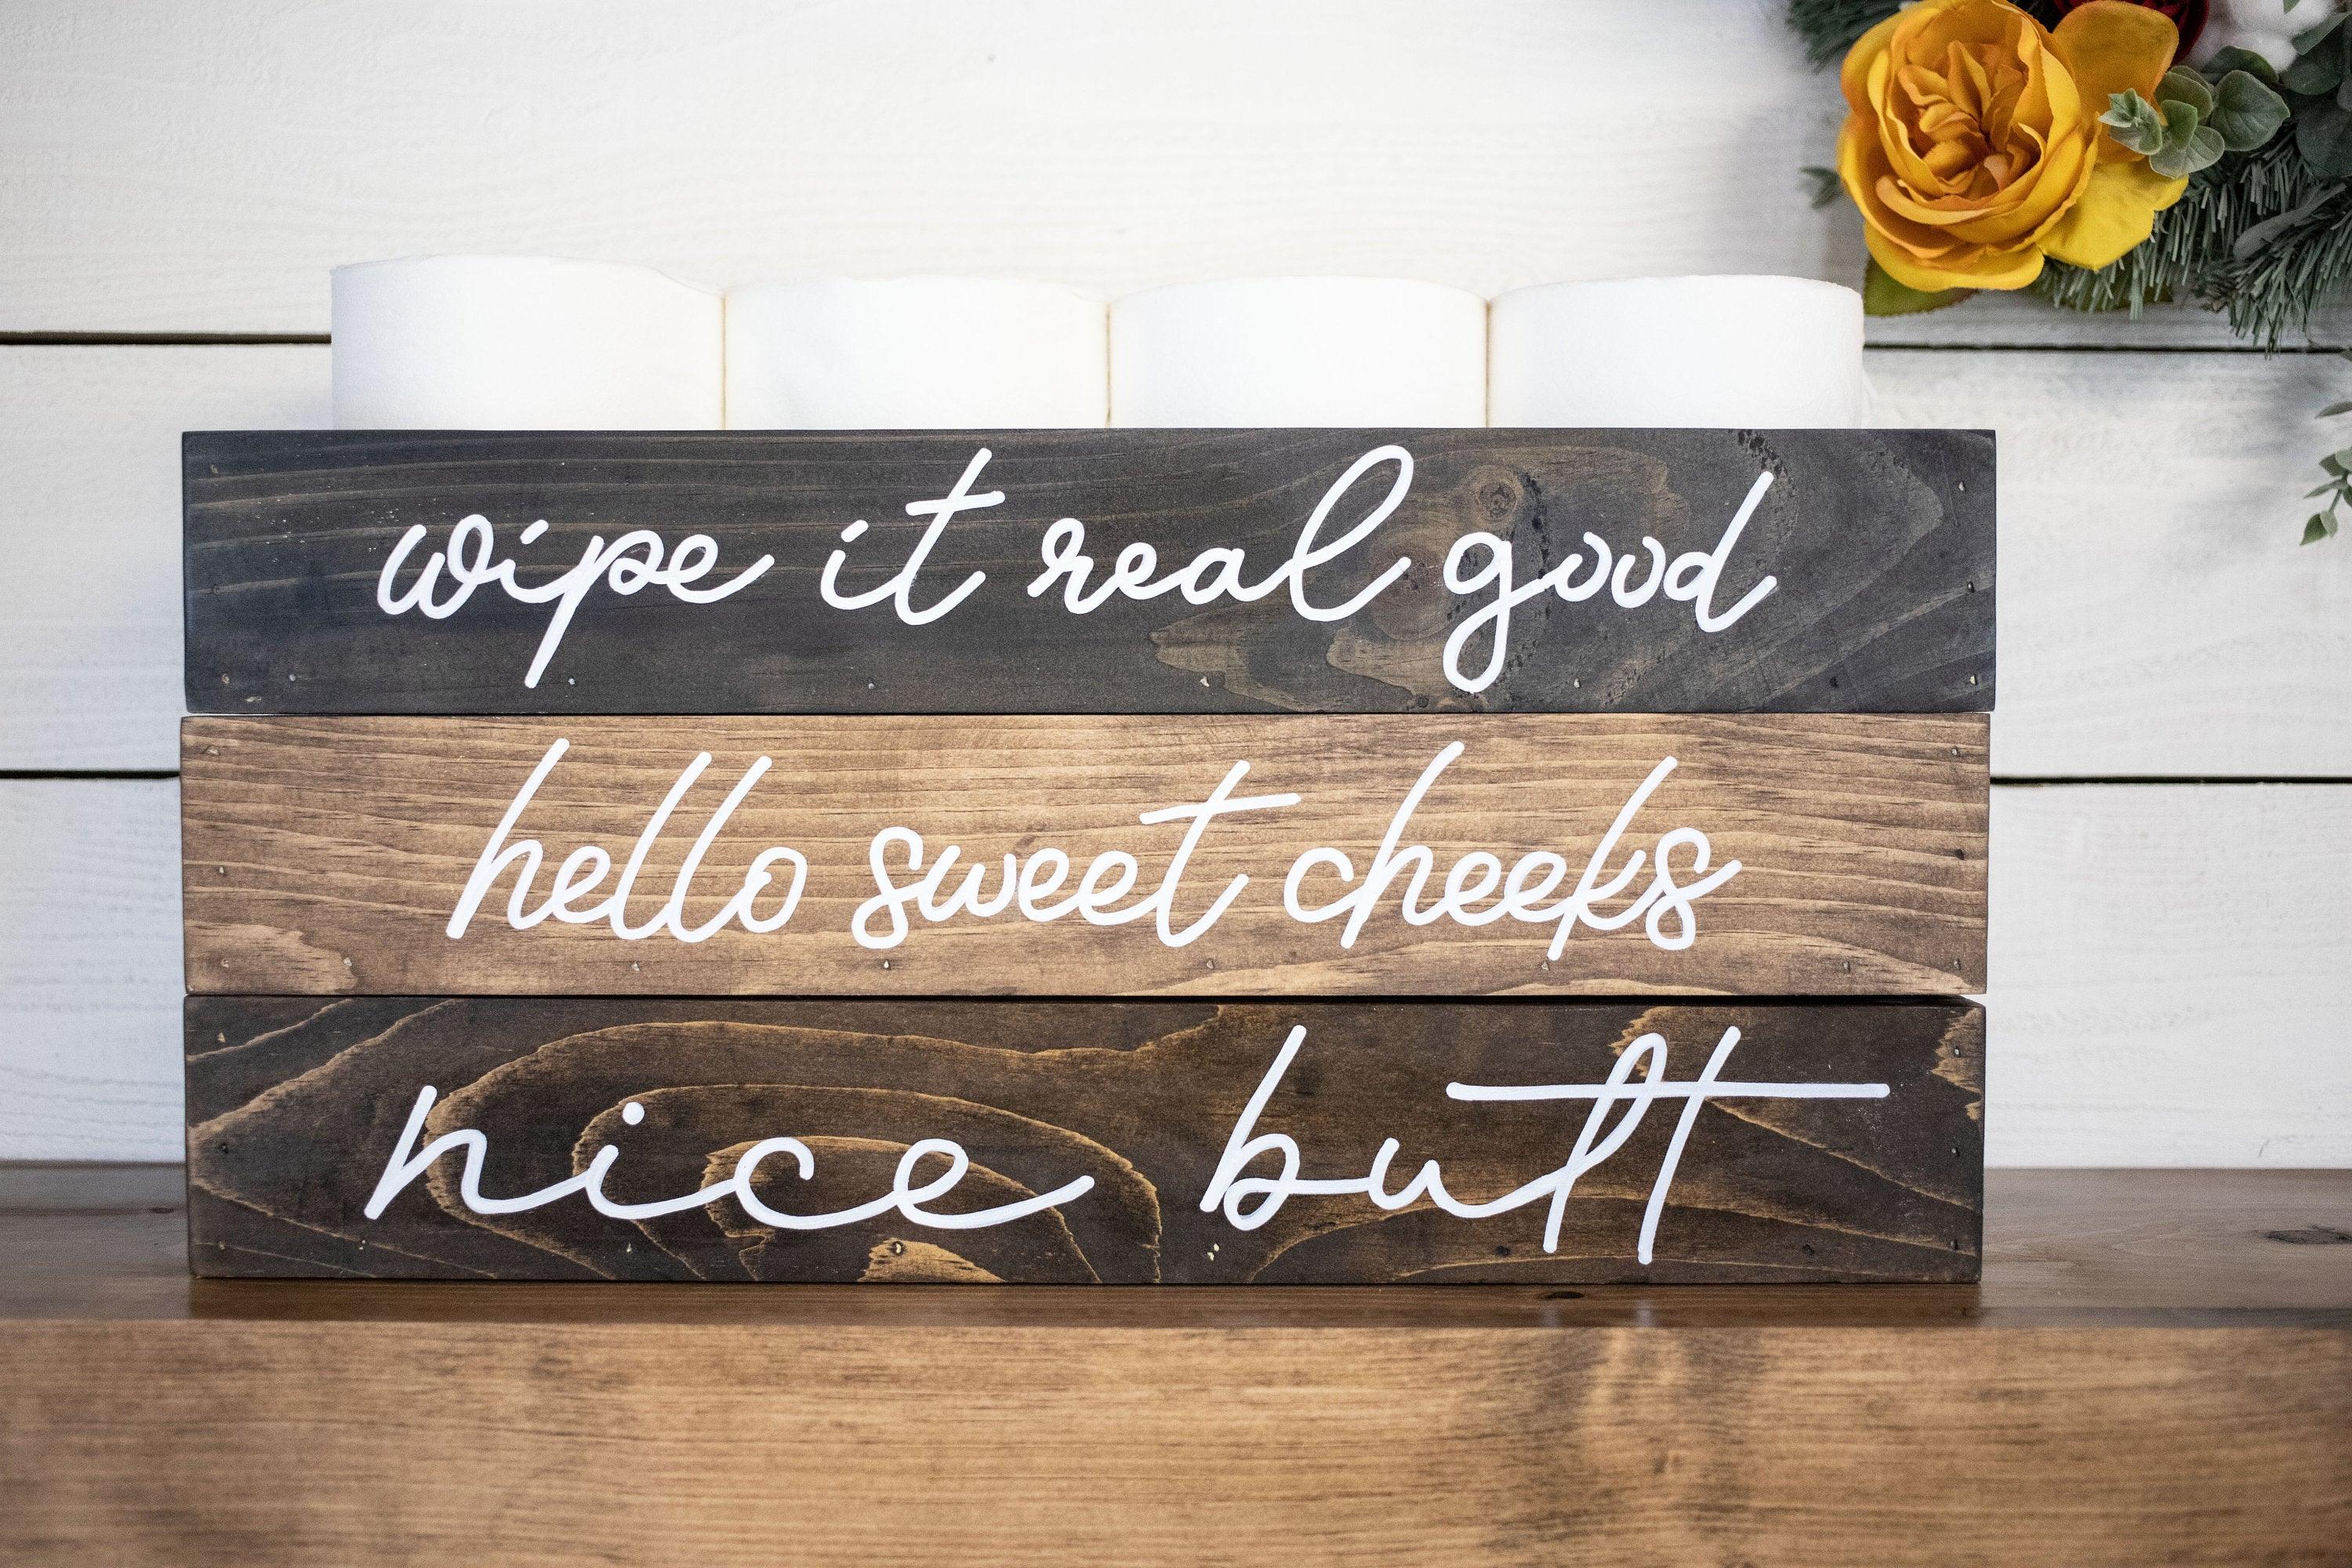 wipe it real good
hello sweet cheeks
nice butt